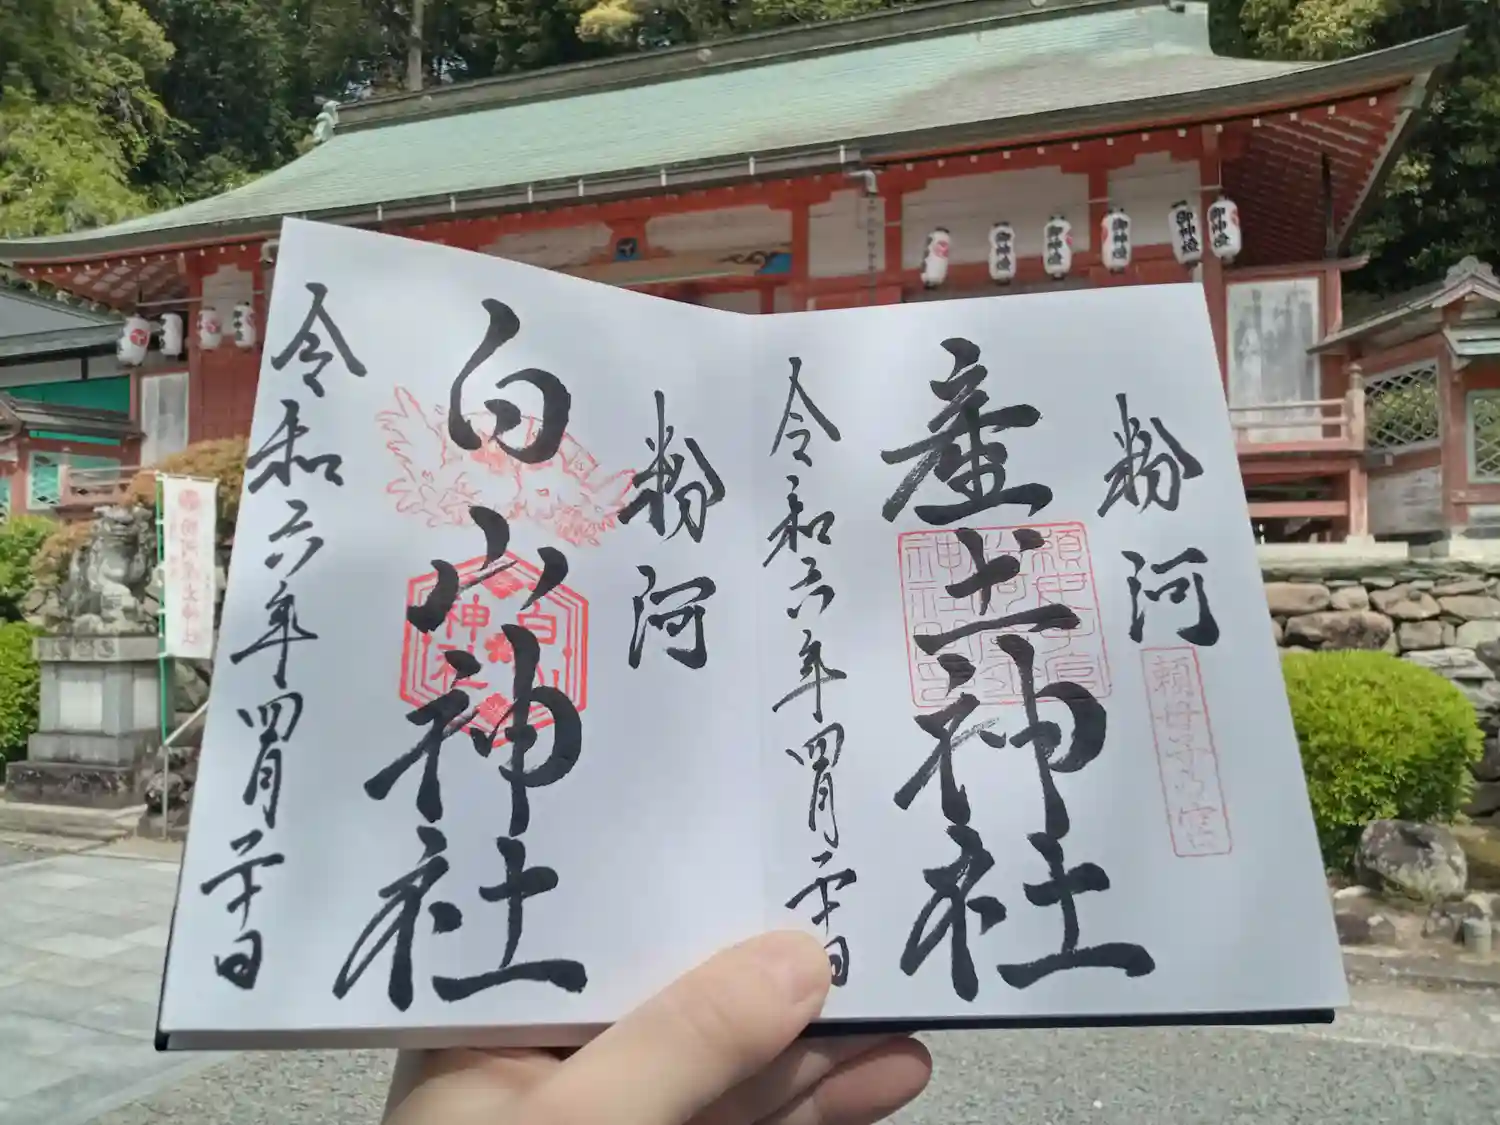 粉河
頼母子乃宮
産土神社
令和六年四月二十日
粉河
白山神社
白山
神社
令和六年四月二十日
御神燈
御神燈
御神燈
御神燈
御神燈
御神燈
粉河産土神社